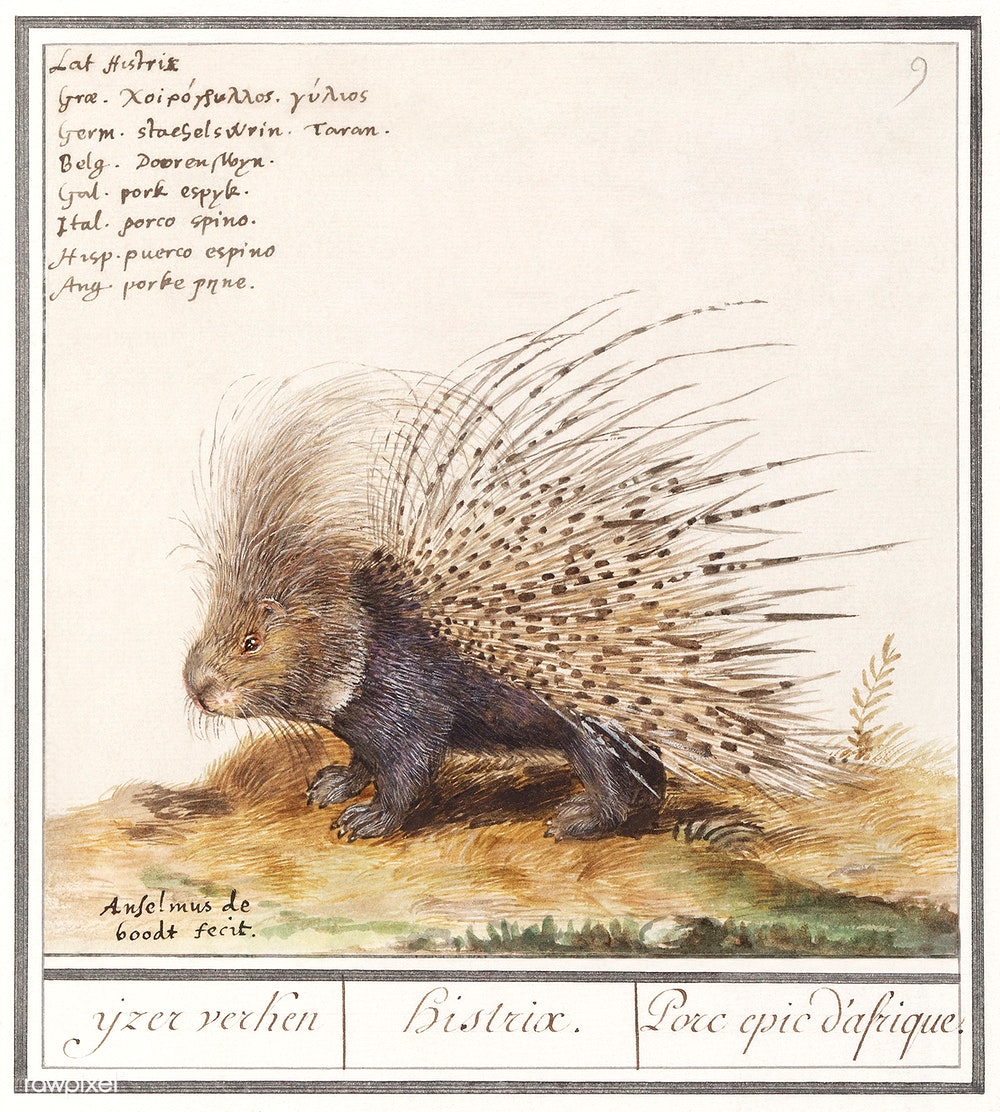 Lat Histrix
9
Græ. Χοιρόγρυλλος. γύλιος
Germ. stachelswein. Taran.
Belg. Dooren swyn.
Gal. pork espyk.
Ital. porco spino.
Hisp. puerco espino
Ang. porke pyne.
Anselmus de
boodt fecit.
yzer verken
Histrix.
Porc epic d'afrique.
rawpixel